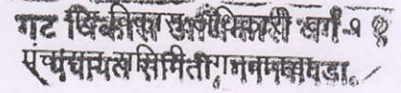 गट विकास अधिकारी वर्ग-१
पंचायत समिती गगनबावडा